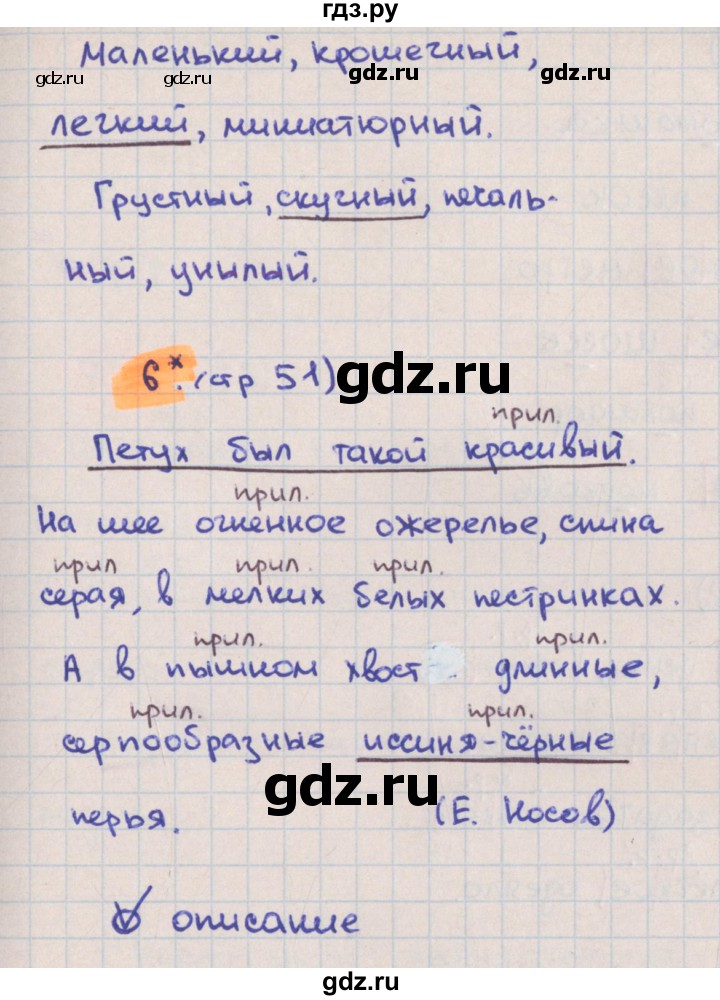 гдз.ру
Маленький, крошечный,
gdz.ru gdz.ru gdz.ru
легкий, миниатюрный.
Грустный, скучный, печаль-
ный, унылый.
6*. (стр 51)
gdz.ru
прил.
Петух был такой красивый.
прил.
На шее огненное ожерелье, спина
прил прил. прил.
серая, в мелких белых пестринках.
прил. прил.
А в пышном хвост длинные,
прил. прил.
серпообразные иссиня-чёрные
gdz.ru
перья. (Е. Носов)
описание
gdz.ru